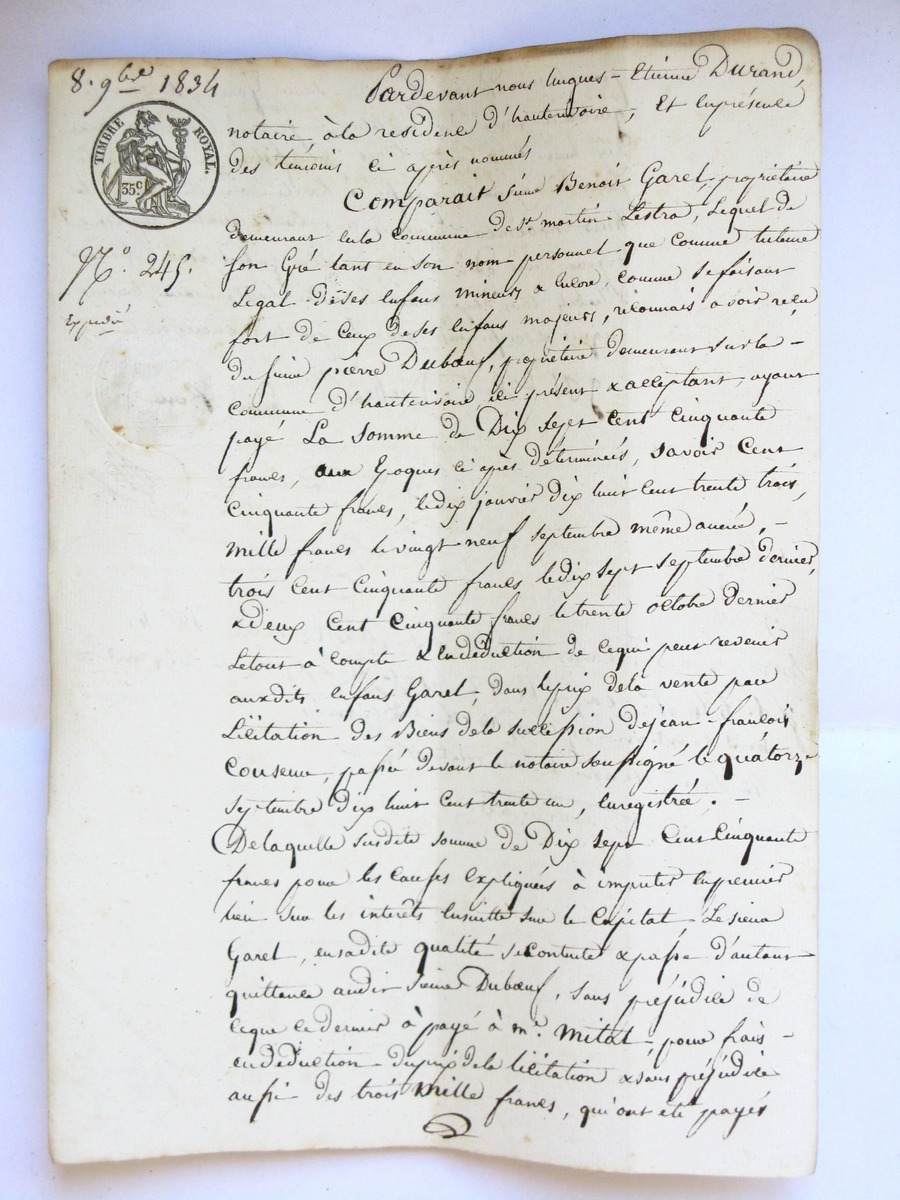 8. 9bre 1834
TIMBRE ROYAL.
35c
No. 245.
Expedié
Pardevant nous hugues - Etienne Durand,
notaire, à la residence d'hauterivoire, Et en présence
des témoins ci après nommés
Comparait sieur Benoit Garel, propriétaire
demeurant en la commune de st. martin Lestra, Lequel de
son Gré tant en son nom personnel que comme tuteur
Légal de ses Enfans mineurs & Encore, comme se faisant
fort de Ceux de ses Enfans majeurs, reconnais avoir reçu
du sieur pierre Dubœuf, propriétaire demeurant sur la -
commune d'hauterivoire ici présent & acceptant, ayant
payé La somme de Dix sept cent cinquante
francs, aux Epoques ci après déterminées, savoir Cent
Cinquante francs, le dix janvier dix huit cent trente trois,
mille francs le vingt neuf septembre même année, -
trois cent Cinquante francs le dix sept septembre dernier,
& deux Cent Cinquante francs le trente octobre dernier
Le tout à compte & en déduction de ce qui peut revenir
auxdits Enfans Garel, dans le prix de la vente par
Licitation des Biens de la succession de jean - françois
, passée devant le notaire soussigné le quatorze
septembre dix huit cent trente un, Enregistrée. -
De laquelle susdite somme de Dix sept Cent Cinquante
francs pour les causes Expliquées à imputer en premier
lieu sur les interêts Ensuitte sur le Capital Le sieur
Garel, en sadite qualité se contente & passe d'autant
quittance audit sieur Dubœuf, sans préjudice de
ce que ce dernier à payé à me. mital pour frais -
en déduction du prix de la licitation & sans préjudice
aussi des trois Mille francs, qui ont été payés